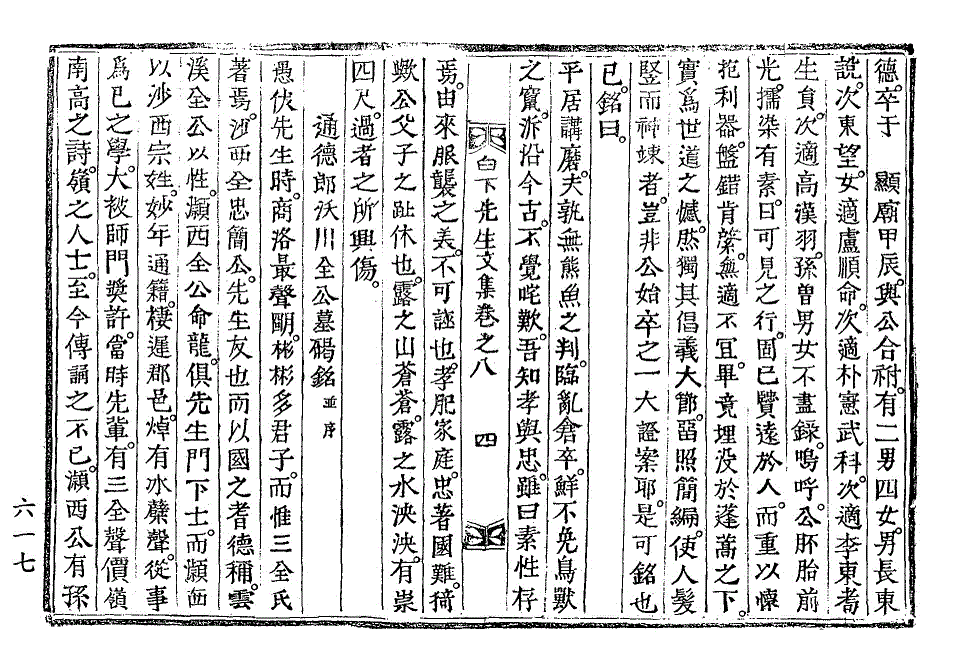 德。卒于　顯廟甲辰。與公合祔。有二男四女。男長東
說。次東望。女適盧順命。次適朴憲武科。次適李東耉
生員。次適高漢羽。孫曾男女不盡錄。嗚呼。公胚胎前
光。擩染有素。曰可見之行。固已贒遠於人。而重以懷
抱利器。盤錯肯綮。無適不宜。畢竟埋没於蓬蒿之下。
實爲世道之憾。然獨其倡義大節。留照簡編。使人髮
竪而神竦者。豈非公始卒之一大證案耶。是可銘也
已。銘曰。
平居講磨。夫孰無熊魚之判。臨亂倉卒。鮮不免鳥獸
之竄。泝沿今古。不覺咤歎。吾知孝與忠。雖曰素性存
白下先生文集卷之八　四
焉。由來服襲之美。不可誣也。孝肥家庭。忠著國難。猗
歟公父子之趾休也。露之山蒼蒼。露之水泱泱。有崇
四尺。過者之所興傷。
通德郎沃川全公墓碣銘 並序
愚伏先生時。商洛最聲明。彬彬多君子。而惟三全氏
著焉。沙西全忠簡公。先生友也而以國之耆德稱。雲
溪全公以性。灝西全公命龍。俱先生門下士。而灝西
以沙西宗姓。妙年通籍。棲遲郡邑。焯有氷蘗聲。從事
爲已之學。大被師門奬許。當時先輩。有三全聲價嶺
南高之詩。嶺之人士。至今傳誦之不已。灝西公有孫
六一七